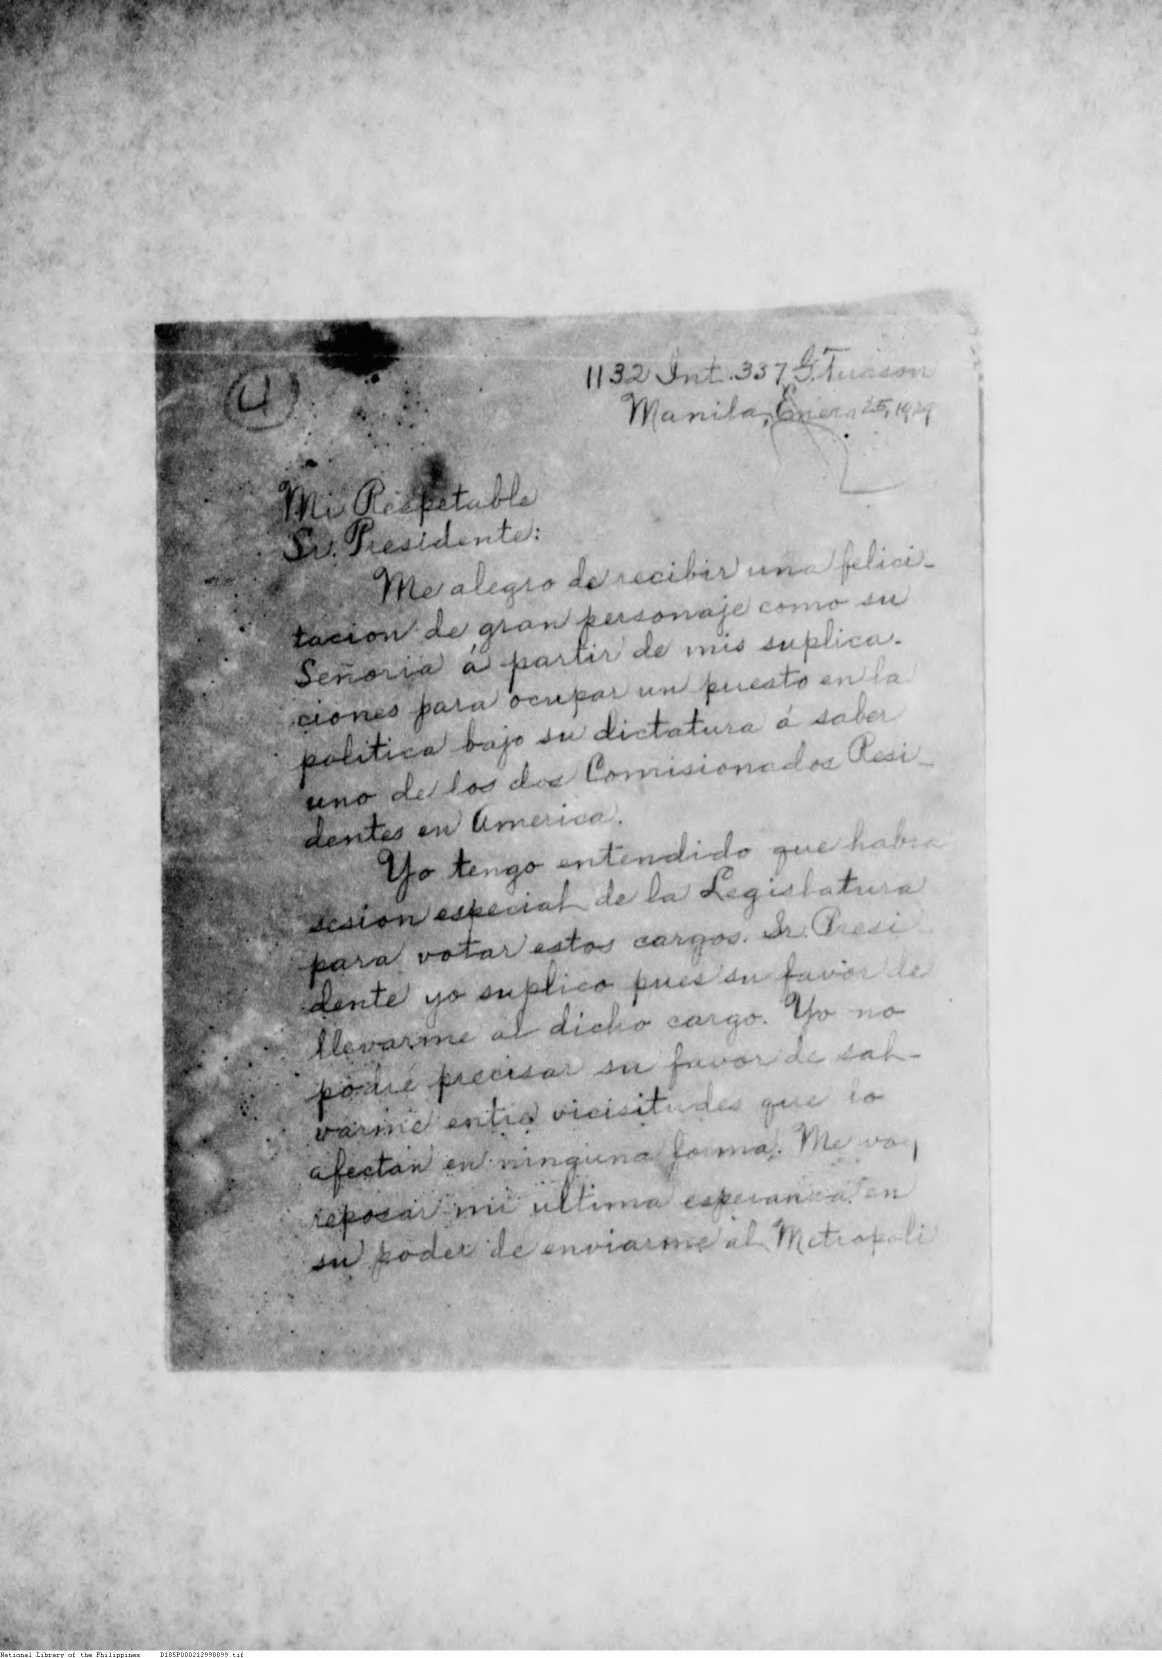 4
1132 Int. 337 G. Tuason
Manila, Enero 25, 1929
Mi Respetable
Sr. Presidente:
Me alegro de recibir una felici-
tacion de gran personaje como su
Señoria á partir de mis suplica-
ciones para ocupar un puesto en la
politica bajo su dictatura á saber
uno de los dos Comisionados Resi-
dentes en America.
Yo tengo entendido que habra
sesion especial de la Legislatura
para votar estos cargos. Sr. Presi
dente yo suplico pues su favor de
llevarme al dicho cargo. Yo no
podré precisar su favor de sal-
varme entre vicisitudes que lo
afectan en ninguna forma. Me voy
reposar mi ultima esperanza en
su poder de enviarme al Metropoli
National Library of the Philippines D185P000212998099.tif